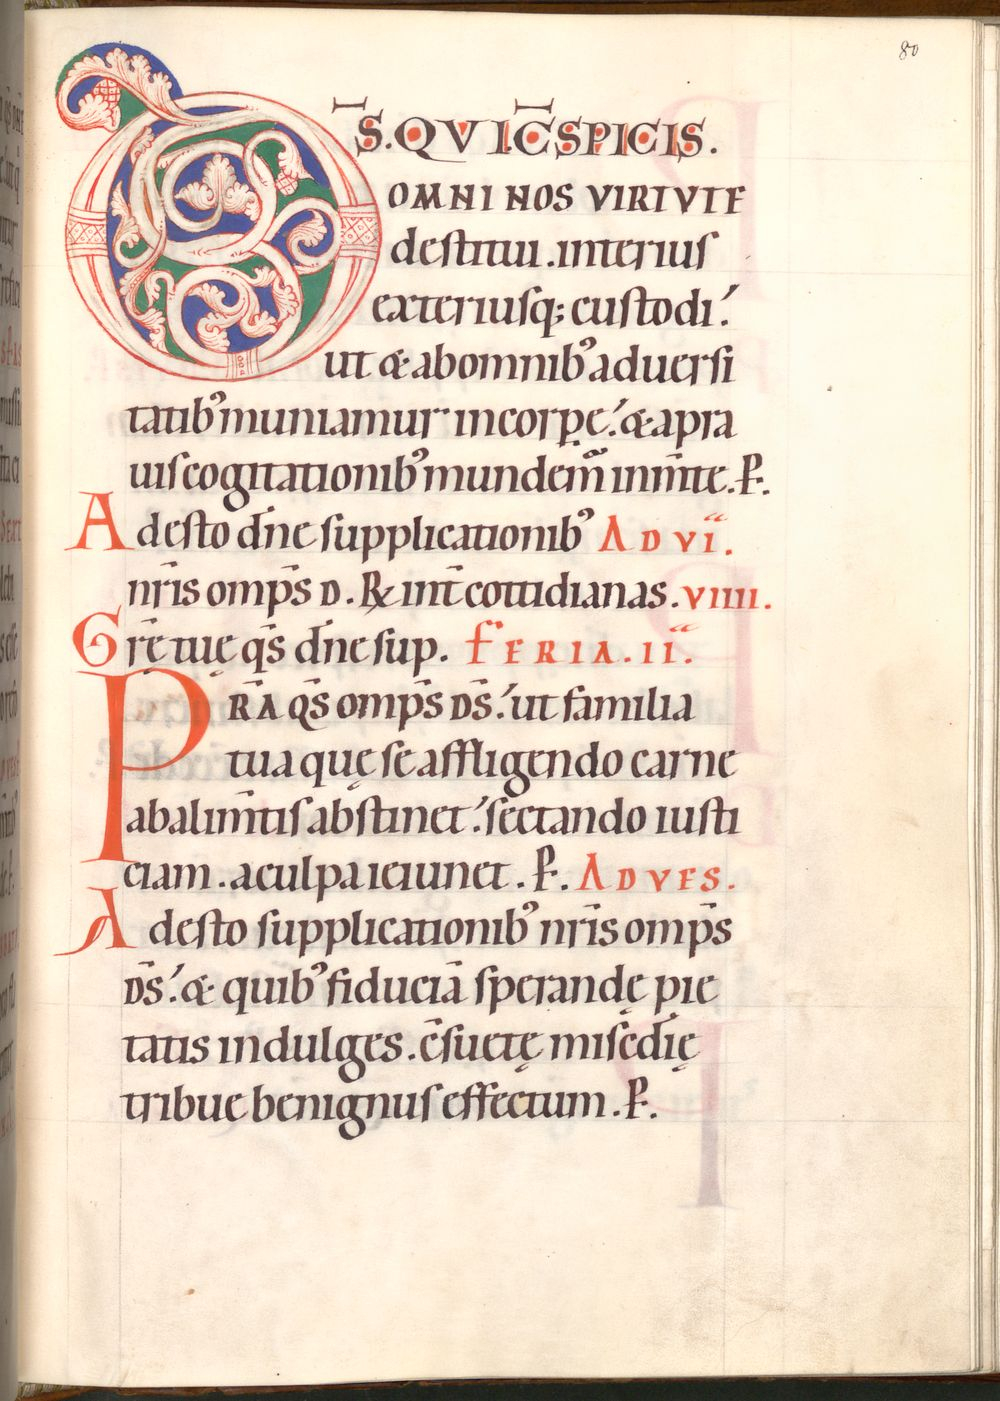 80
DS̄. QVI C̄SPICIS.
OMNI NOS VIRTVTE
destitui. interius
exteriusq; custodi.
ut & abomnib' aduersi
tatib' muniamur incorpe. & apra
uiscogitationib' mundem̄ inm̄te. P̄.
Adesto dn̄e supplicationib' AD VI.
nr̄is omp̄s D. R̄ int̄ cottidianas. VIIII.
Gr̄ę tuę q̄s dn̄e sup. FERIA. II.
PRĀ Q̄S omp̄s DS̄. ut familia
tua quę se affligendo carne
abalim̄tis abstinet. sectando iusti
ciam. aculpa ieiunet. P̄. AD VES.
Adesto supplicationib' nr̄is omp̄s
DS̄. & quib' fiduciā sperandę pie
tatis indulges. c̄suetę misc̄dię
tribue benignus effectum. P̄.